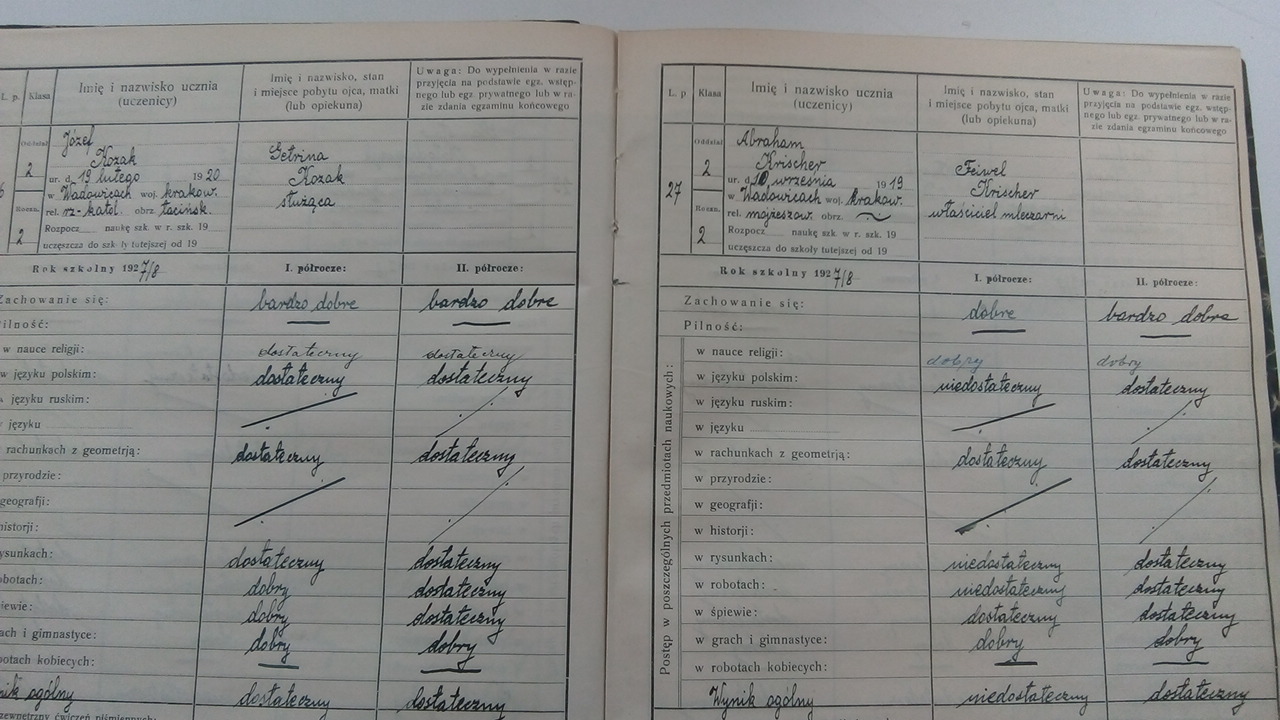 L. p.
Klasa
Imię i nazwisko ucznia
(uczenicy)
Imię i nazwisko, stan
i miejsce pobytu ojca, matki
(lub opiekuna)
Uwaga: Do wypełnienia w razie
przyjęcia na podstawie egz. wstęp-
nego lub egz. prywatnego lub w ra-
zie zdania egzaminu końcowego
6
Oddział
2
Roczn.
2
Józef
Kozak
ur. d. 19 lutego 1920
w Wadowicach woj. krakow.
rel. rz-katol. obrz. łacińsk.
Rozpocz naukę szk. w r. szk. 19
uczęszcza do szkoły tutejszej od 19
Kozak
służąca
Rok szkolny 1927/8
I. półrocze:
II. półrocze:
Zachowanie się: bardzo dobre bardzo dobre
Pilność:
w nauce religji: dostateczny dostateczny
w języku polskim: dostateczny dostateczny
języku ruskim:
języku
rachunkach z geometrją: dostateczny dostateczny
przyrodzie:
geografji:
historji:
rysunkach: dostateczny dostateczny
robotach: dobry dostateczny
śpiewie: dobry dostateczny
ach i gimnastyce: dobry dobry
botach kobiecych:
nik ogólny dostateczny dostateczny
zewnętrzny ćwiczeń piśmiennych:
L. p
Klasa
Imię i nazwisko ucznia
(uczenicy)
Imię i nazwisko, stan
i miejsce pobytu ojca, matki
(lub opiekuna)
Uwaga: Do wypełnienia w razie
przyjęcia na podstawie egz. wstęp-
nego lub egz. prywatnego lub w ra-
zie zdania egzaminu końcowego
27
Oddział
2
Roczn.
2
Abraham
Krischer
ur. d. 10 września 1919
w Wadowicach woj. krakow.
rel. mojżeszow. obrz.
Rozpocz naukę szk. w r. szk. 19
uczęszcza do szkoły tutejszej od 19
Feiwel
Krischer
właściciel mleczarni
Rok szkolny 1927/8
I. półrocze:
II. półrocze:
Zachowanie się: dobre bardzo dobre
Pilność:
Postęp w poszczególnych przedmiotach naukowych:
w nauce religji: dobry dobry
w języku polskim: niedostateczny dostateczny
w języku ruskim:
w języku
w rachunkach z geometrją: dostateczny dostateczny
w przyrodzie:
w geografji:
w historji:
w rysunkach: niedostateczny dostateczny
w robotach: niedostateczny dostateczny
w śpiewie: dostateczny dostateczny
w grach i gimnastyce: dobry dobry
w robotach kobiecych:
Wynik ogólny niedostateczny dostateczny